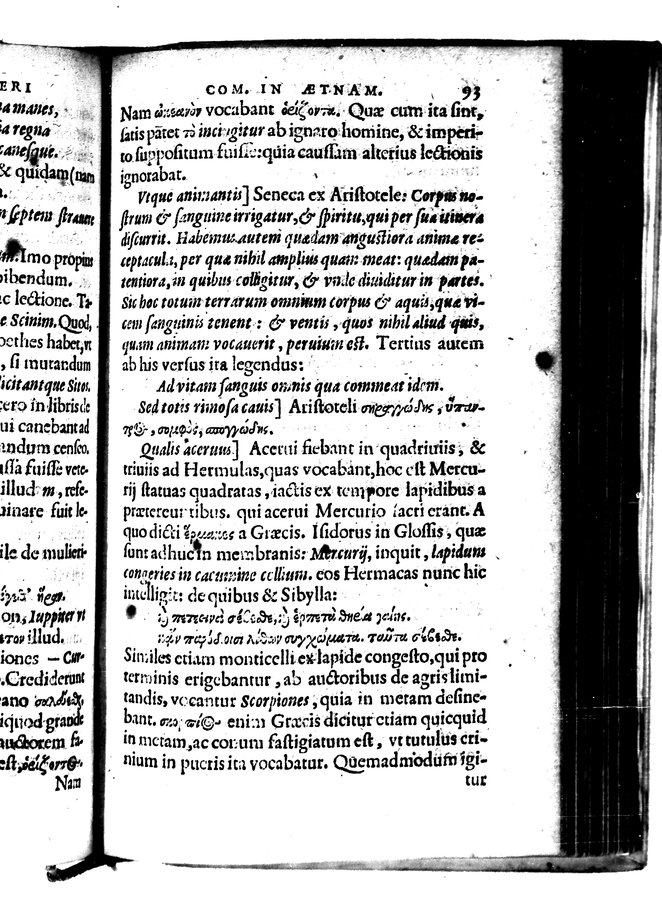 ERI
a manes,
ia regna
canesque.
& quidam (nam
n septem strauere
Imo propius
bibendum.
ac lectione. Ta-
e Scinim. Quod,
oethes habet, vt
, si mutandum
licitantque Sitos.
cero in libris de
ui canebant ad
andum censeo.
ussa fuisse vete-
illud m, refe-
uinare fuit le-
ile de mulieri-
on, Iuppiter vt
ετον illud.
iones — Cur-
. Crediderunt
iquod grande
auctorem fa-
est, ὁρίζοντος
Nam
COM. IN ÆTNAM. 93
Nam ὠκεανὸν vocabant ὁρίζοντα. Quæ cum ita sint,
satis patet τὸ incingitur ab ignaro homine, & imperi-
to suppositum fuisse: quia caussam alterius lectionis
ignorabat.
Vtque animantis] Seneca ex Aristotele: Corpus no-
strum & sanguine irrigatur, & spiritu, qui per sua itinera
discurrit. Habemus autem quædam angustiora animæ re-
ceptacula, per quæ nihil amplius quam meat: quædam pa-
tentiora, in quibus colligitur, & vnde diuiditur in partes.
Sic hoc totum terrarum omnium corpus & aquis, quæ vi-
cem sanguinis tenent: & ventis, quos nihil aliud quis,
quam animam vocauerit, peruium est. Tertius autem
ab his versus ita legendus:
Ad vitam sanguis omnis qua commeat idem.
Sed totis rimosa cauis] Aristoteli σηραγγώδης, ὕπαν-
τρος, σομφὸς, σπογγώδης.
Qualis aceruus] Acerui fiebant in quadriuiis, &
triuiis ad Hermulas, quas vocabant, hoc est Mercu-
rij statuas quadratas, iactis ex tempore lapidibus a
prætereuntibus. qui acerui Mercurio sacri erant. A
quo dicti ἕρμακες a Græcis. Isidorus in Glossis, quæ
sunt adhuc in membranis: Mercurij, inquit, lapidum
congeries in cacumine collium. eos Hermacas nunc hic
intelligit: de quibus & Sibylla:
καὶ πετεινὰ σέβεσθε, καὶ ἑρπετὰ θηρία γαίης.
κἀν παρόδοισι λίθων συγχώματα. ταῦτα σέβεσθε.
Similes etiam monticelli ex lapide congesto, qui pro
terminis erigebantur, ab auctoribus de agris limi-
tandis, vocantur Scorpiones, quia in metam desine-
bant. σκορπίος enim Græcis dicitur etiam quicquid
in metam, ac conum fastigiatum est, vt tutulus cri-
nium in pueris ita vocabatur. Quemadmodum igi-
tur